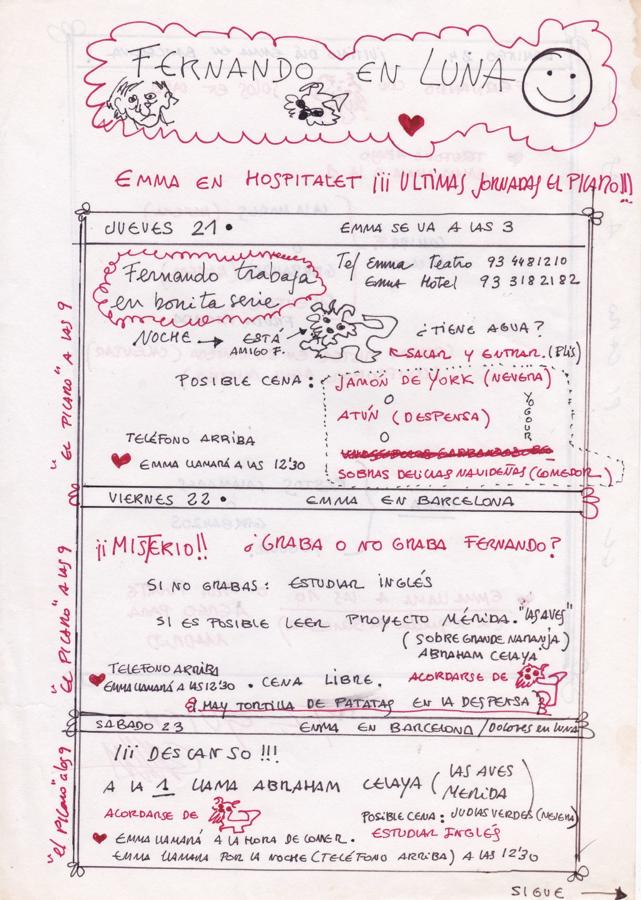 FERNANDO EN LUNA
EMMA EN HOSPITALET ¡¡¡ULTIMAS JORNADAS EL PICARO!!!
JUEVES 21 • EMMA SE VA A LAS 3
Fernando trabaja
en bonita serie
Tel Emma Teatro 93 4481210
Emma Hotel 93 3182182
NOCHE → ESTÁ AMIGO F. →
¿TIENE AGUA?
SACAR Y ENTRAR. (PLIS)
POSIBLE CENA: JAMÓN DE YORK (NEVERA)
O
ATÚN (DESPENSA)
O
YOGOUR
SOBRAS DELICIAS NAVIDEÑAS (COMEDOR)
TELÉFONO ARRIBA
EMMA LLAMARÁ A LAS 12'30
"EL PICARO" A LAS 9
VIERNES 22 • EMMA EN BARCELONA
¡¡MISTERIO!! ¿GRABA O NO GRABA FERNANDO?
SI NO GRABAS: ESTUDIAR INGLÉS
SI ES POSIBLE LEER PROYECTO MÉRIDA. "LAS AVES"
(SOBRE GRANDE NARANJA)
ABRAHAM CELAYA
TELEFONO ARRIBA
EMMA LLAMARÁ A LAS 12'30 • CENA LIBRE. ACORDARSE DE
HAY TORTILLA DE PATATAS EN LA DESPENSA
"EL PICARO" A LAS 9
SABADO 23 EMMA EN BARCELONA / Dolores en luna
¡¡¡DESCANSO!!!
A LA 1 LLAMA ABRAHAM CELAYA (LAS AVES
MERIDA)
ACORDARSE DE
POSIBLE CENA: JUDIAS VERDES (NEVERA)
ESTUDIAR INGLÉS
EMMA LLAMARÁ A LA HORA DE COMER.
EMMA LLAMARA POR LA NOCHE (TELÉFONO ARRIBA) A LAS 12'30
"el PICARO" a las 9
SIGUE →